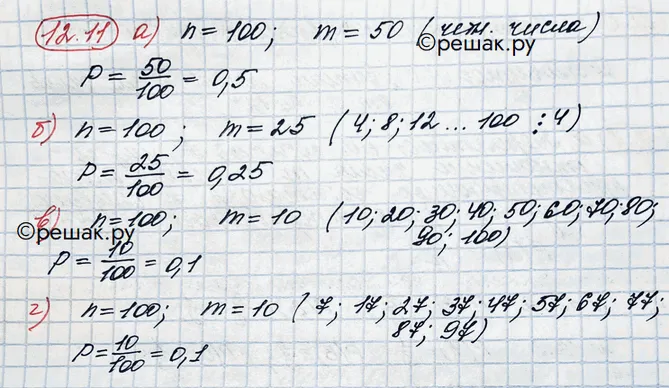 12.11 а) n = 100; m = 50 (чет. числа)
©решак.ру
P = 50/100 = 0,5
б) n = 100; m = 25 (4; 8; 12 ... 100 ⋮ 4)
P = 25/100 = 0,25
в) n = 100; m = 10 (10; 20; 30; 40; 50; 60; 70; 80;
90; 100)
©решак.ру
P = 10/100 = 0,1
г) n = 100; m = 10 (7; 17; 27; 37; 47; 57; 67; 77;
87; 97)
P = 10/100 = 0,1